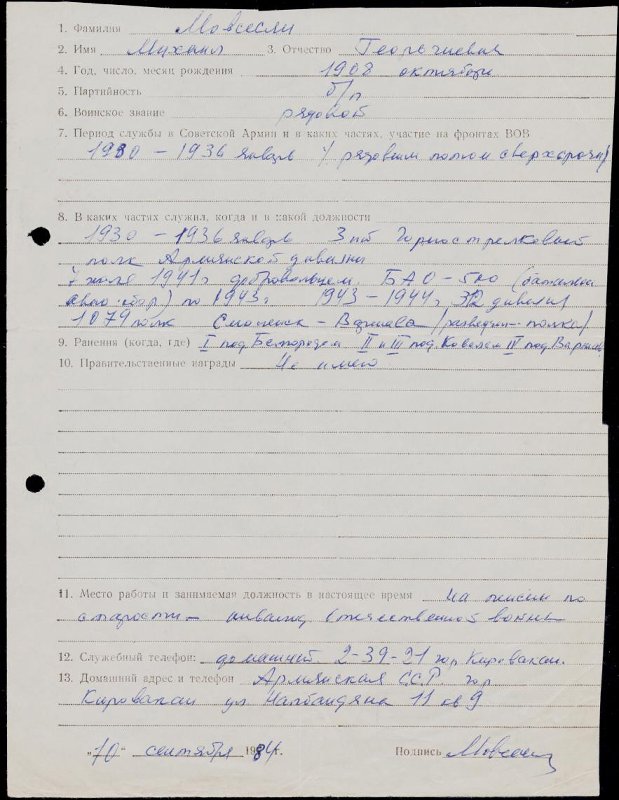 1. Фамилия Мовсесян
2. Имя Михаил 3. Отчество Георгиевич
4. Год, число, месяц рождения 1908 октября
5. Партийность б/п
6. Воинское звание рядовой
7. Период службы в Советской Армии и в каких частях, участие на фронтах ВОВ
1930 – 1936 январь / рядовым потом сверхсрочн/
8. В каких частях служил, когда и в какой должности
1930 – 1936 январь 3 Горнострелковый
полк Армянской дивизии
1941 г добровольцем БАО-500 (батальон
) по 1943 г. 1943 – 1944 г. 312 дивизия
1079 полк Смоленск – Варшава /разведчик полка/
9. Ранения (когда, где) I под Белгородом II и III под Ковелем IV под Варшав
10. Правительственные награды Не имею
11. Место работы и занимаемая должность в настоящее время На пенсии по
старости – инвалид Отечественной войны
12. Служебный телефон: домашний 2-39-21 гор Кировакан.
13. Домашний адрес и телефон Армянская ССР гор
Кировакан ул Налбандяна 11 кв 9
"10" сентября 1984 г. Подпись